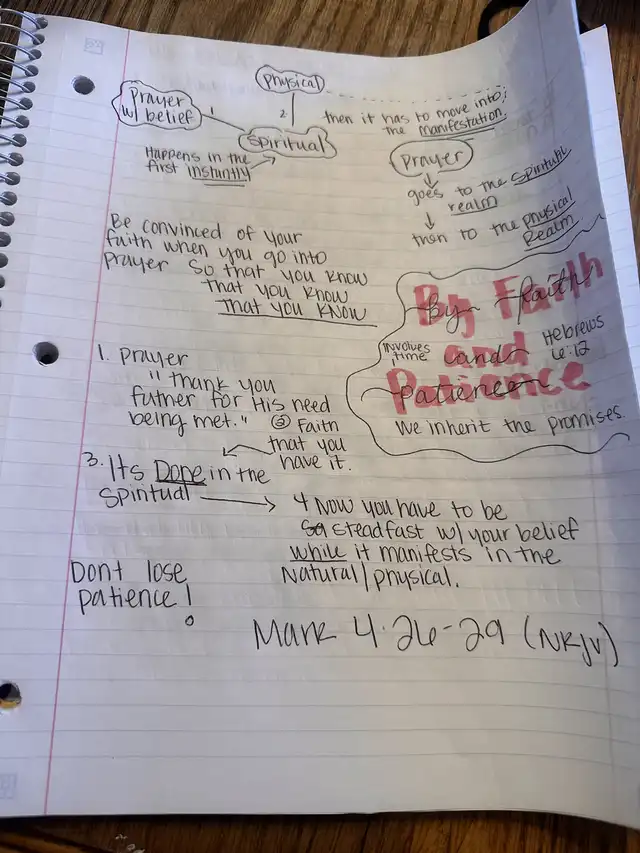 Physical
Prayer
w/ belief
1
2
Spiritual
then it has to move into;
the manifestation.
Happens in the
first instantly
Prayer
goes to the spiritual
realm
then to the physical
Realm
Be convinced of your
faith when you go into
prayer so that you know
that you know
that you know
By Faith
By faith
involves
time
and
and
Hebrews
6:12
Patience
patience
We inherit the promises.
1. Prayer
"Thank you
futher for His need
being met."
② Faith
that you
have it.
3. Its Done in the
spiritual
4 Now you have to be
steadfast w/ your belief
while it manifests in the
Natural/physical.
Dont lose
patience!
Mark 4:26-29 (NKJV)